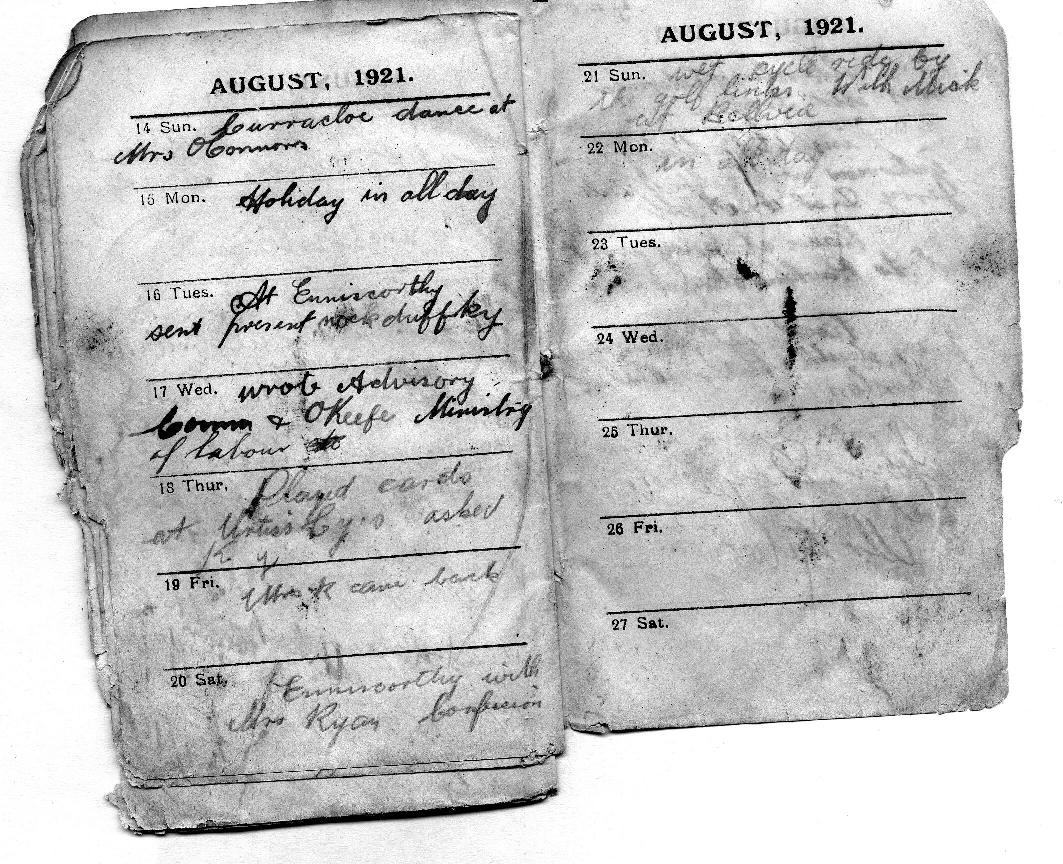 AUGUST, 1921.
14 Sun. Curracloe dance at
Mrs OConnors
15 Mon. Holiday in all day
16 Tues. At Enniscorthy
sent present
17 Wed. wrote Advisory
Comm & OKeefe Ministry
of labour
18 Thur. Played cards
at asked
19 Fri. Mrs R came back
20 Sat. Enniscorthy with
Mrs Ryan Confession
AUGUST, 1921.
21 Sun. wet cycle ride by
the golf links. With Mick
at
22 Mon. in all day
23 Tues.
24 Wed.
25 Thur.
26 Fri.
27 Sat.